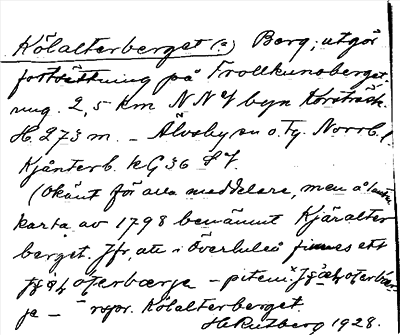 Kölalterberget (a) Berg; utgör
fortsättning på Trollkunaberget.
ung. 2,5 km NNV byn Korsträsk.
H. 273 m. – Älvsby sn o. Tg. Norrb. l
Kjånterb. kG 36 SV.
(Okänt för alla meddelare, men å
karta av 1798 benämnt Kjäralter
berget. Jfr, att i Överluleå finnes ett
– pitem.
je – repr. Kölalterberget.
H. Rutberg 1928.